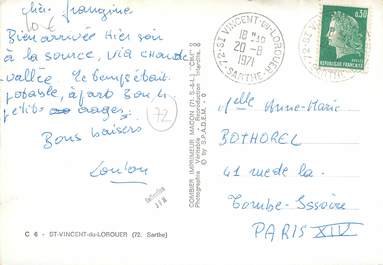 chère frangine
10 €
Bien arrivée Hier soir
à la source, via chaude
vallée. le temps était
potable, à part Bon le
petit orages.
Bons baisers
72
Collection
J F M
C 6 - ST-VINCENT-du-LOROUER (72. Sarthe)
COMBIER IMPRIMEUR MACON (71. S.-&-L.) "CIM"
Photographie Véritable - Reproduction interdite
© by S.P.A.D.E.M.
72-ST VINCENT-DU-LOROUER
18 H
20-8
1971
SARTHE
0,30
REPUBLIQUE FRANÇAISE
Melle Anne-Marie
BOTHOREL
41 rue de la
Tombe-Issoire
PARIS XIV